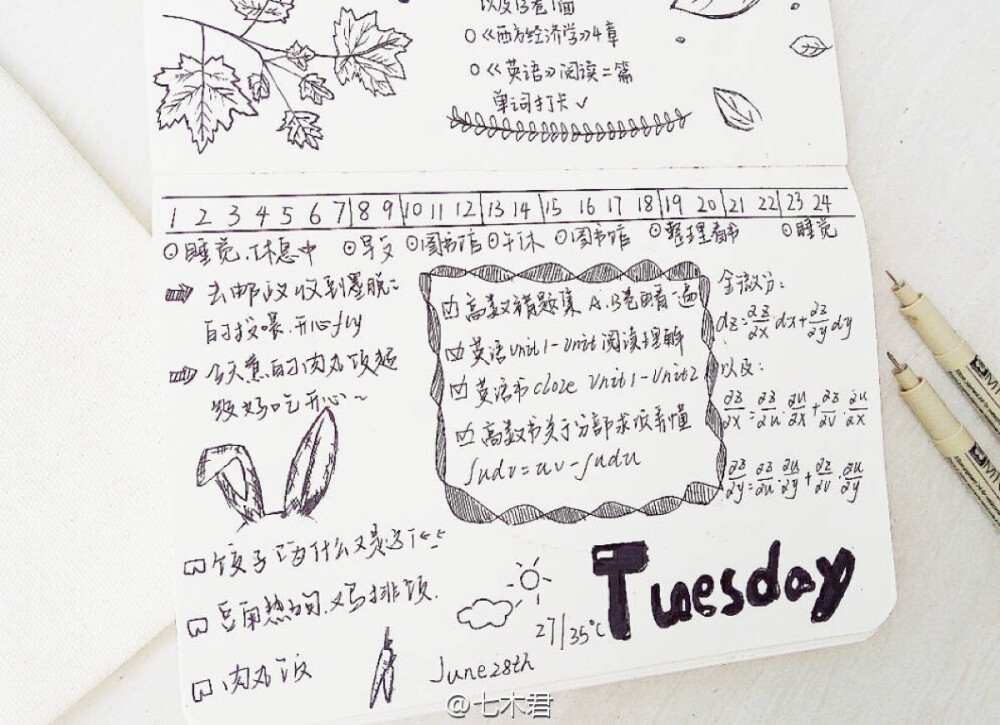 以及B卷1面
《西方经济学》4章
《英语》阅读二篇
单词打卡✓
1 2 3 4 5 6 7 8 9 10 11 12 13 14 15 16 17 18 19 20 21 22 23 24
睡觉.休息中 早文 图书馆 午休 图书馆 整理看书 睡觉
去邮政收到墨脱
的投喂.开心fly
今天煮的肉丸饭超
级好吃开心~
高数错题集A.B卷西看一遍
英语unit1-unit阅读理解
英语书cloze Unit1-Unit2
高数书关于分部求收弄懂
∫udv=uv-∫udu
全微分:
dz=∂z/∂x·dx+∂z/∂y dy
以及:
∂z/∂x=∂z/∂u·∂u/∂x+∂z/∂v·∂u/∂x
∂z/∂y=∂z/∂u·∂u/∂y+∂z/∂v·∂u/∂y
饺子
豆角热焖.鸡排饭.
肉丸饭
27/35℃
Tuesday
June 28th
@七木君